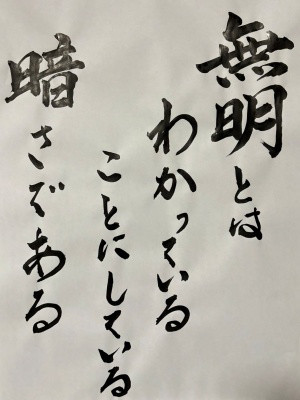 無明とは
わかっている
ことにしている
暗さである